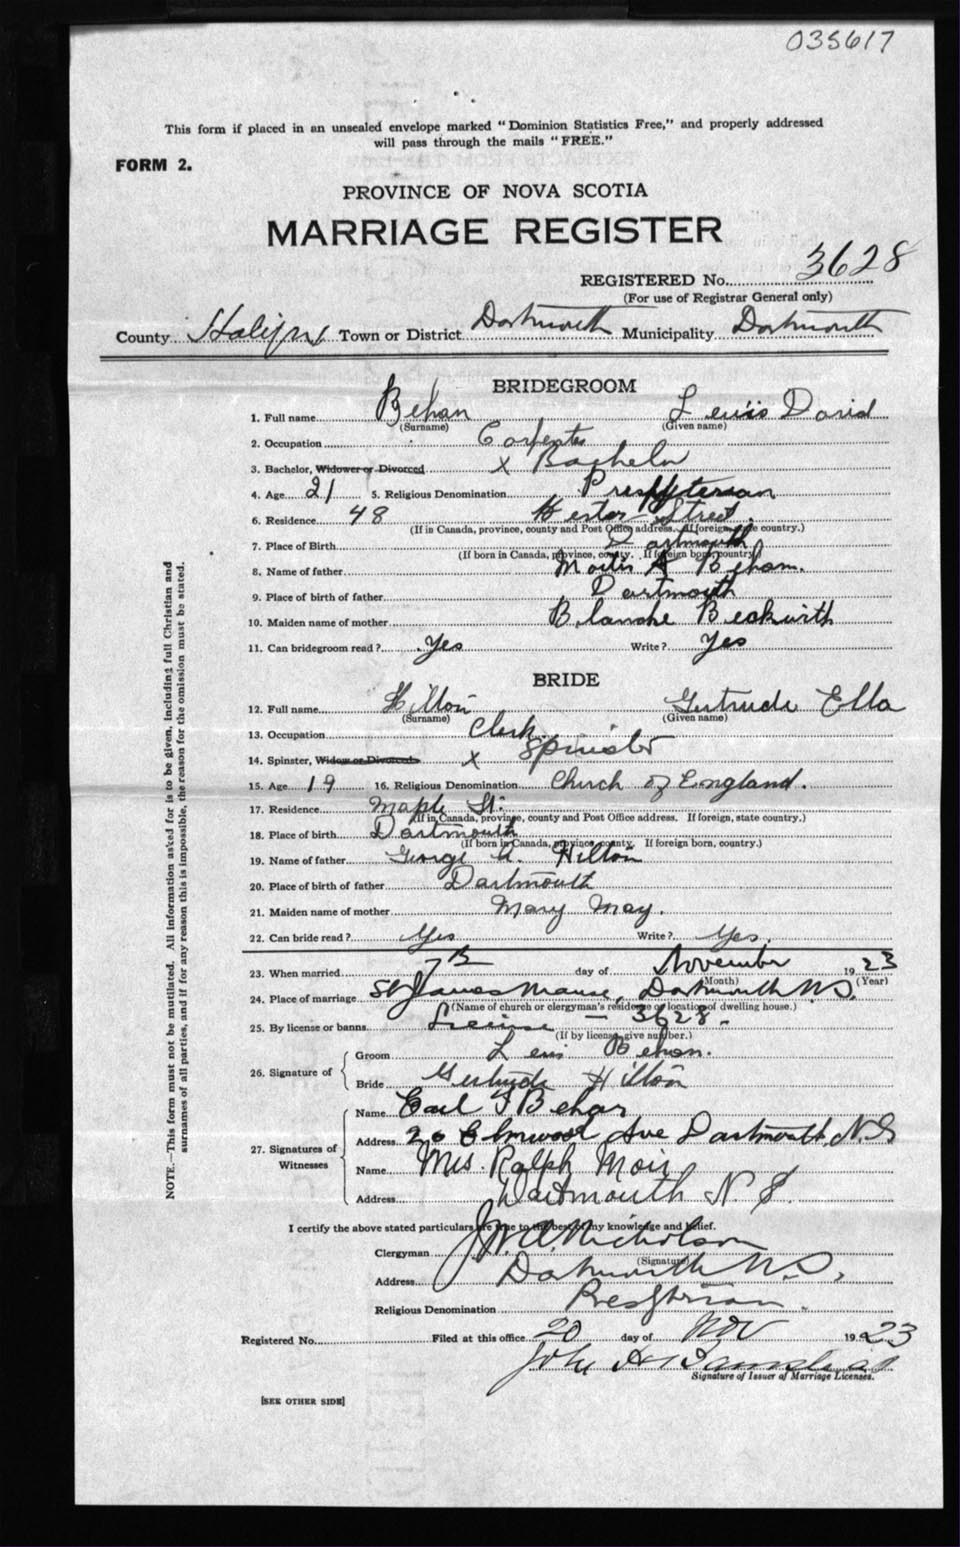 035617
This form if placed in an unsealed envelope marked "Dominion Statistics Free," and properly addressed
will pass through the mails "FREE."
FORM 2.
PROVINCE OF NOVA SCOTIA
MARRIAGE REGISTER
REGISTERED No. 3628
(For use of Registrar General only)
County Halifax Town or District Dartmouth Municipality Dartmouth
BRIDEGROOM
1. Full name Behan Lewis David
(Surname) (Given name)
2. Occupation Carpenter
3. Bachelor, Widower or Divorced x Bachelor
4. Age 21 5. Religious Denomination Presbyterian
6. Residence 48 Hester Street
(If in Canada, province, county and Post Office address. If foreign, state country.)
7. Place of Birth Dartmouth
(If born in Canada, province, county. If foreign born, country)
8. Name of father A Behan.
9. Place of birth of father Dartmouth
10. Maiden name of mother Blanche Beckwith
11. Can bridegroom read? Yes Write? Yes
BRIDE
12. Full name Hilton Gertrude Ella
(Surname) (Given name)
13. Occupation Clerk.
14. Spinster, Widow or Divorced x Spinster
15. Age 19 16. Religious Denomination Church of England.
17. Residence Maple St.
(If in Canada, province, county and Post Office address. If foreign, state country.)
18. Place of birth Dartmouth
(If born in Canada, province, county. If foreign born, country.)
19. Name of father George A. Hilton
20. Place of birth of father Dartmouth
21. Maiden name of mother Mary May.
22. Can bride read? Yes Write? Yes.
23. When married 7th day of November 1923
(Month) (Year)
24. Place of marriage St James Manse, Dartmouth N.S.
(Name of church or clergyman's residence or location of dwelling house.)
25. By license or banns License - 3628.
(If by license, give number.)
26. Signature of
Groom Lewis Behan.
Bride Gertrude Hilton
27. Signatures of Witnesses
Name Earl F Behan
Address 20 Elmwood Ave Dartmouth, N.S
Name Mrs. Ralph Moir
Address Dartmouth N.S.
I certify the above stated particulars are true to the best of my knowledge and belief.
Clergyman Nicholson
(Signature)
Address Dartmouth N.S,
Religious Denomination Presbyterian.
Registered No. Filed at this office 20 day of Nov 1923
John
Signature of Issuer of Marriage Licenses.
[SEE OTHER SIDE]
NOTE.—This form must not be mutilated. All information asked for is to be given, including full Christian and
surnames of all parties, and if for any reason this is impossible, the reason for the omission must be stated.